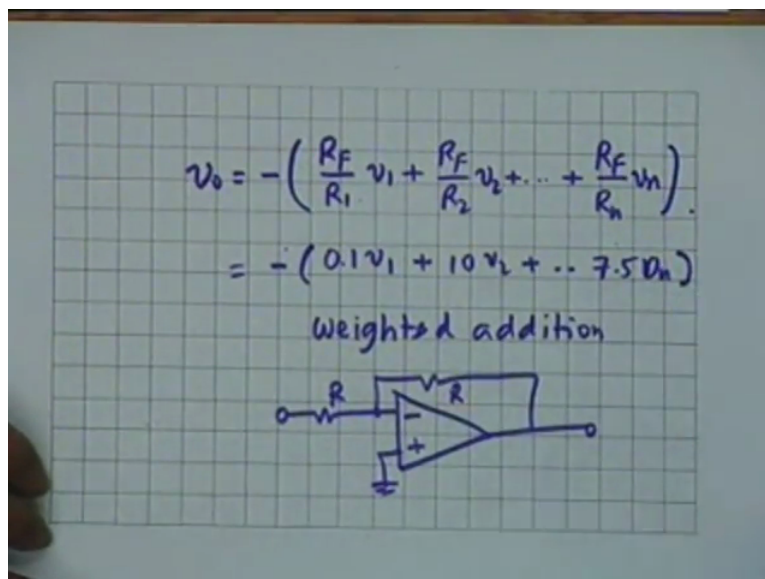 v₀ = -( R_F/R₁ v₁ + R_F/R₂ v₂ + ... + R_F/Rₙ vₙ ).
= -( 0.1 v₁ + 10 v₂ + .. 7.5 vₙ )
weighted addition
R R
-
+